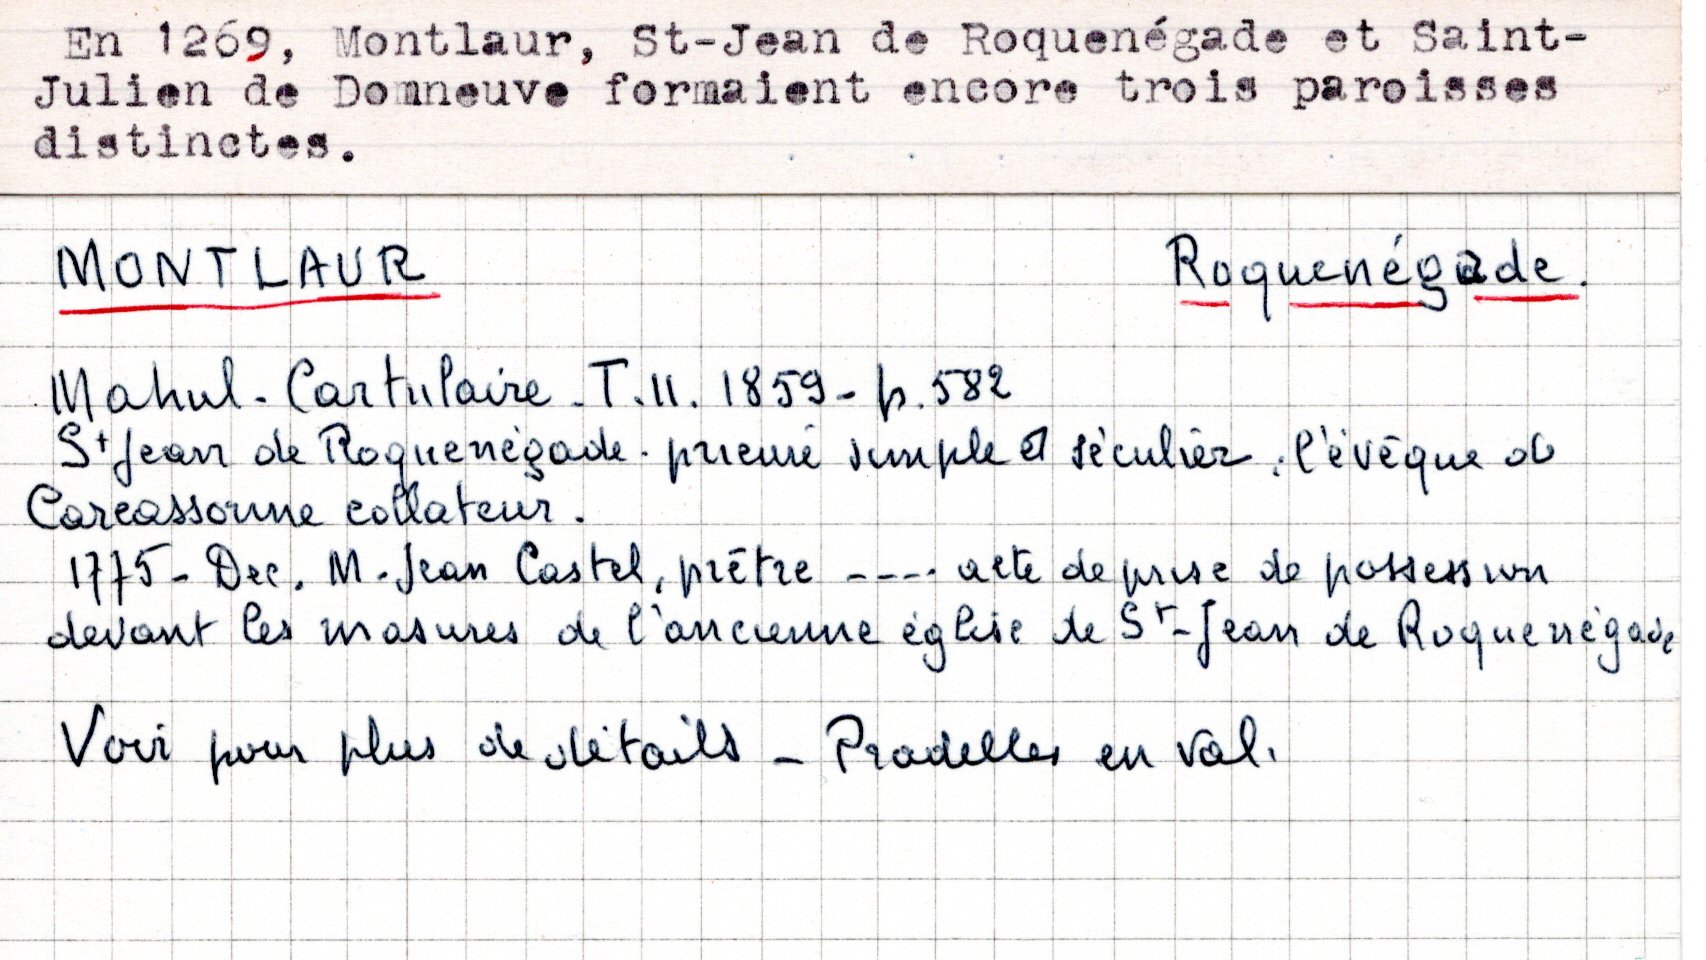 En 1269, Montlaur, St-Jean de Roquenégade et Saint-
Julien de Domneuve formaient encore trois paroisses
distinctes.
MONTLAUR Roquenégade.
Mahul - Cartulaire - T.II. 1859 - p. 582
St Jean de Roquenégade - prieuré simple et séculier : l'évêque de
Carcassonne collateur.
1775 - Dec. M. Jean Castel, prêtre ---- acte de prise de possession
devant les masures de l'ancienne église de St-Jean de Roquenégade
Voir pour plus de détails - Pradelles en Val.